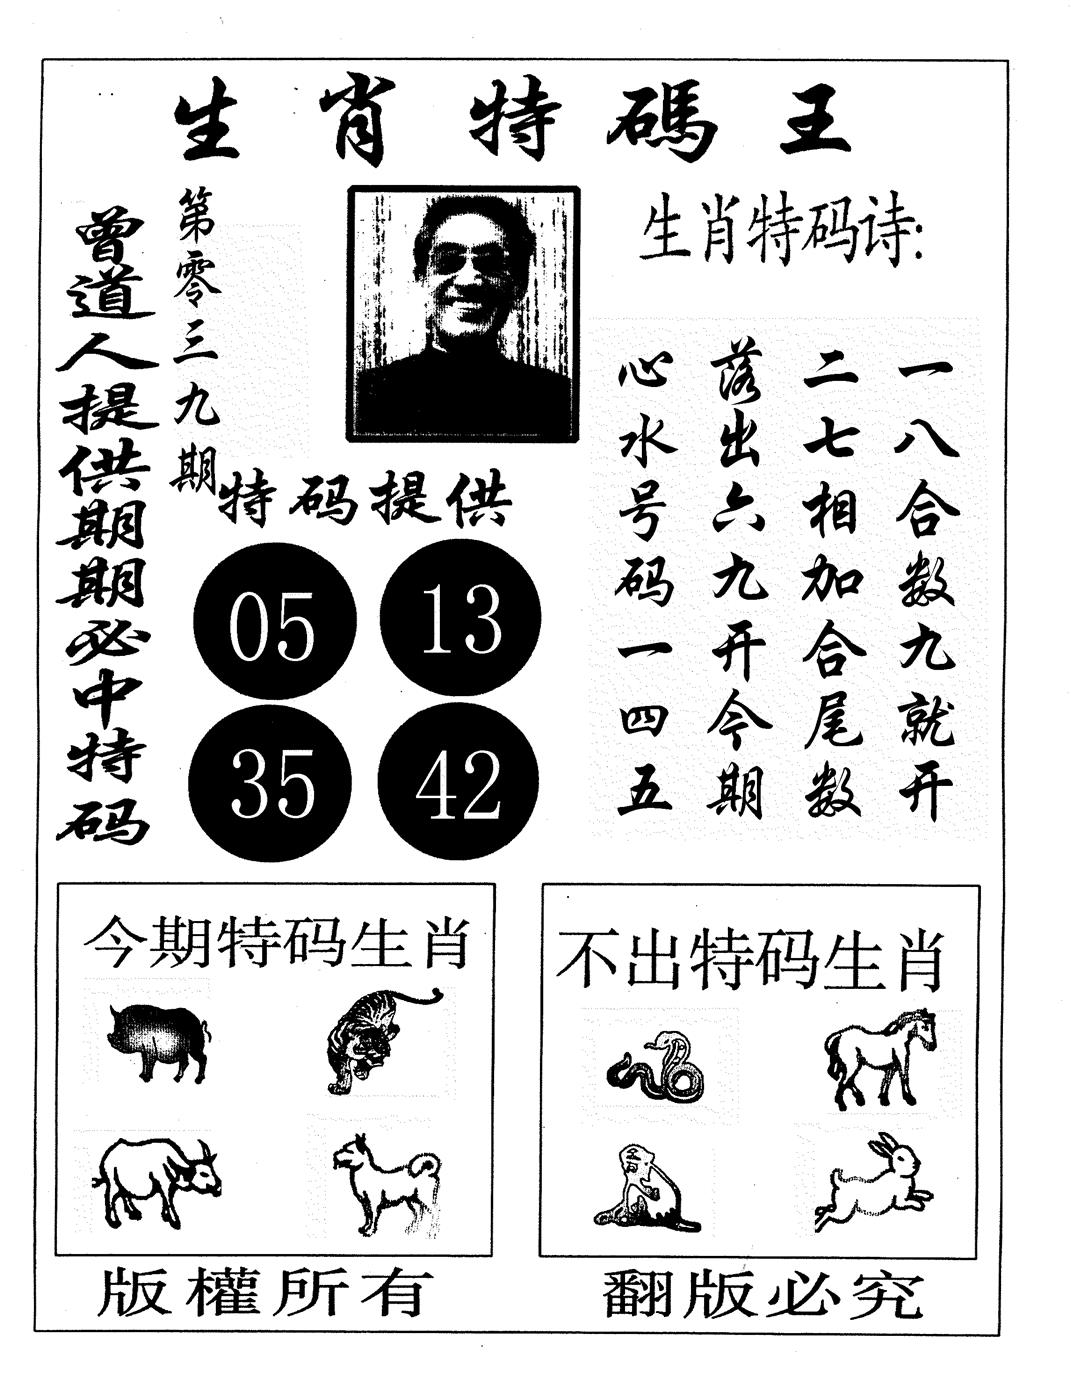 生肖特碼王
曾道人提供期期必中特码
第零三九期
生肖特码诗:
一八合数九就开
二七相加合尾数
落出六九开今期
心水号码一四五
特码提供
05 13
35 42
今期特码生肖
不出特码生肖
版權所有
翻版必究